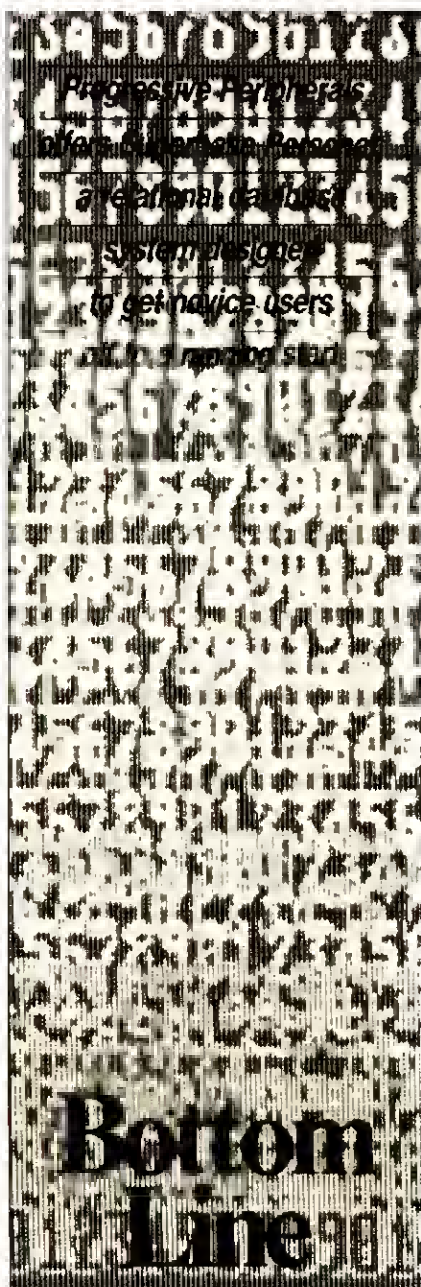 Progressive Peripherals
offers Superbase Personal
a relational database
system designed
to get novice users
off to a running start
Bottom
Line